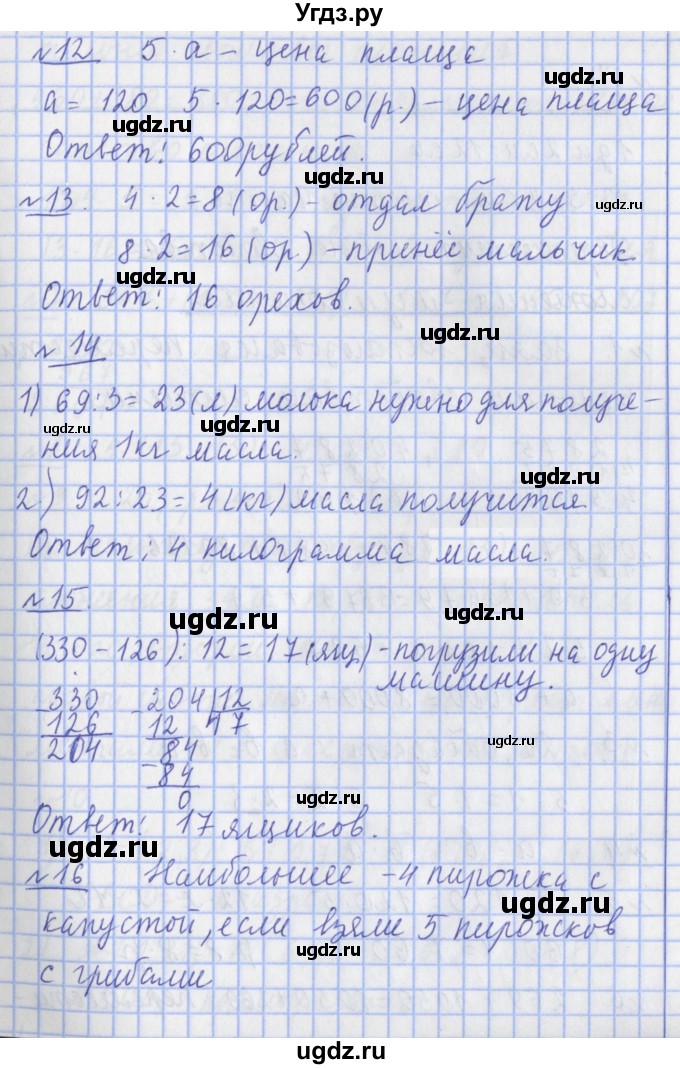 Угдз.ру
№12 5·а – цена плаща
ugdz.ru
а = 120 5·120=600(р.) – цена плаща
ugdz.ru ugdz.ru
Ответ: 600рублей.
ugdz.ru
№13. 4·2=8 (ор.) – отдал брату
ugdz.ru
8·2=16 (ор.) – принёс мальчик
ugdz.ru
Ответ: 16 орехов.
ugdz.ru
№14
1) 69:3= 23(л) молока нужно для получе-
ugdz.ru ugdz.ru ugdz.ru
ния 1кг масла.
ugdz.ru
2) 92:23=4(кг) масла получится
Ответ: 4 килограмма масла.
ugdz.ru
№15.
ugdz.ru ugdz.ru
(330-126):12=17(ящ) – погрузили на одну
машину.
330 204 12
126 12 17
204 84
84
0
ugdz.ru ugdz.ru
ugdz.ru
Ответ: 17 ящиков.
ugdz.ru
№16 Наибольшее – 4 пирожка с
ugdz.ru
капустой, если взяли 5 пирожков
ugdz.ru
с грибами
ugdz.ru
ugdz.ru